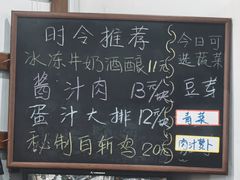 时令推荐
冰冻牛奶酒酿11元
酱汁肉 13/块
蛋汁大排 12/块
秘制白斩鸡 20
今日可
选蔬菜
豆芽
青菜
肉汁萝卜